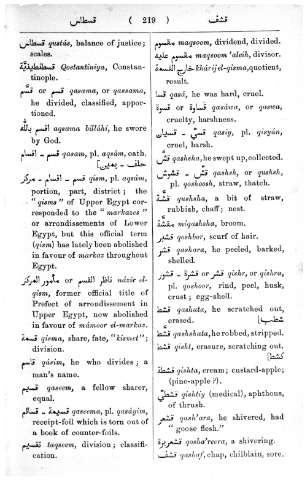 قسطاس ( 219 ) قشف
قسطاس qustás, balance of justice;
scales.
قسطنطينيّة Qostantiniya, Constan-
tinople.
قسم or قسّم qasama, or qassama,
he divided, classified, appor-
tioned.
اقسم بالله aqsama billáhi, he swore
by God.
قسم - اقسام qasam, pl. aqsám, oath.
قسم - اقسام - مركز qism, pl. aqsám,
portion, part, district; the
"qisms" of Upper Egypt cor-
responded to the "markazes"
or arrondissements of Lower
Egypt, but this official term
(qism) has lately been abolished
in favour of markaz throughout
Egypt.
ناظر القسم or مأمور المركز názir el-
qism, former official title of
Prefect of arrondissement in
Upper Egypt, now abolished
in favour of mámoor el-markaz.
قسمة qisma, share, fate, "kismet";
division.
قاسم qásim, he who divides; a
man's name.
قسيم qaseem, a fellow sharer,
equal.
قسيمة - قسائم qaseema, pl. qasáyim,
receipt-foil which is torn out of
a book of counter-foils.
تقسيم taqseem, division; classifi-
cation.
مقسوم maqsoom, dividend, divided.
مقسوم عليه maqsoom 'aleih, divisor.
خارج القسمة khárij el-qisma, quotient,
result.
قسا qasá, he was hard, cruel.
قساوة or قسوة qasáwa, or qaswa,
cruelty, harshness.
cruel, harsh.
قشّ qashsha, he swept up, collected.
قشّ - قشوش qashsh, or qushsh,
pl. qoshoosh, straw, thatch.
قشّة qashsha, a bit of straw,
rubbish, chaff; nest.
مقشّة miqashsha, broom.
scurf of hair.
قشر qashara, he peeled, barked,
shelled.
قشر or قشرة - قشور qishr, or qishra,
pl. qoshoor, rind, peel, husk,
crust; egg-shell.
قشط qashata, he scratched out,
erased.
qashshata, he robbed, stripped.
قشط qisht, erasure, scratching out.
قشطة qishta, cream; custard-apple;
(pine-apple?).
(medical), aphthous,
of thrush.
he shivered, had
"goose flesh."
قشعريرة a shivering.
قشف qashaf, chap, chilblain, sore.